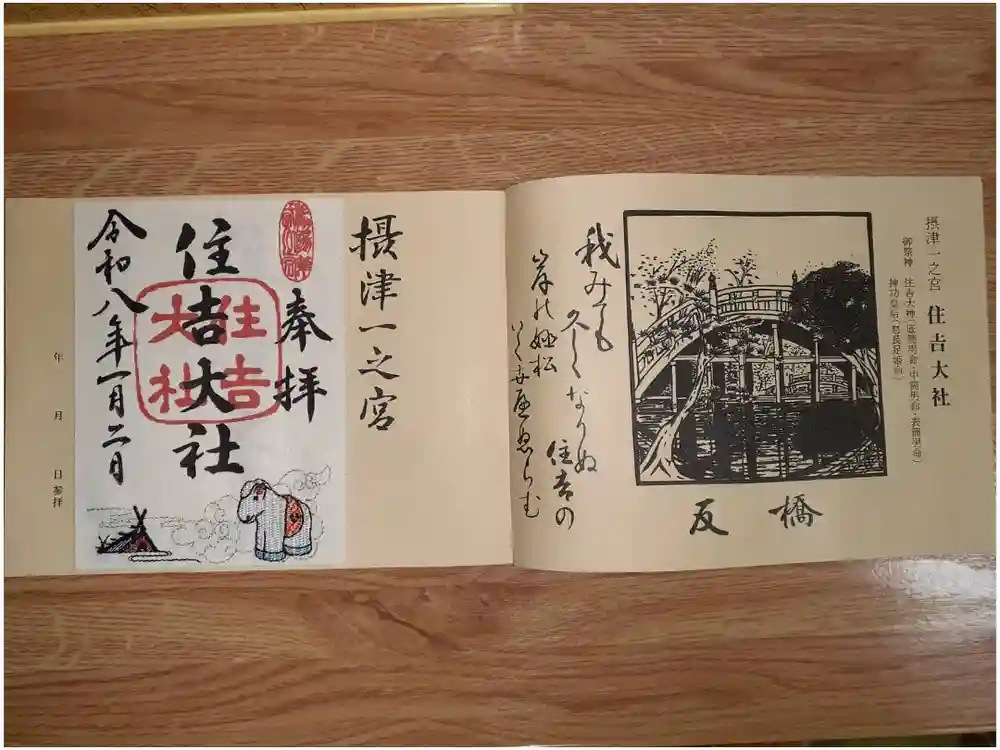 摂津一之宮 住吉大社
御祭神 住吉大神(底筒男命・中筒男命・表筒男命)
神功皇后(息長足姫命)
反橋
我みても
久しくなりぬ
住吉の
岸の姫松
いく世へぬらむ
摂津一之宮
奉拝
住吉大社
住吉
大社
令和八年一月二日
年 月 日参拝